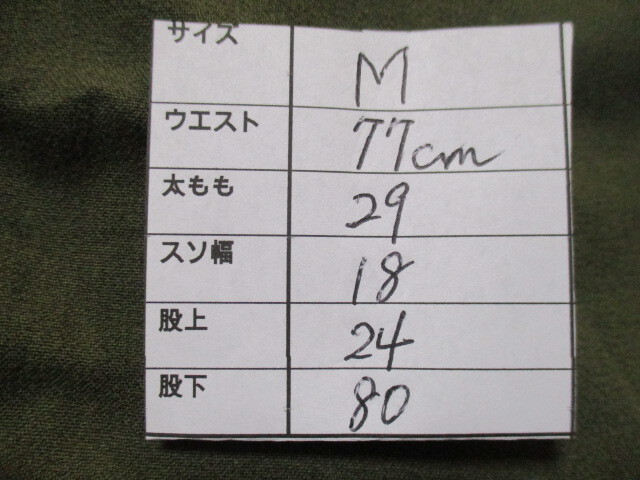 サイズ M
ウエスト 77cm
太もも 29
スソ幅 18
股上 24
股下 80